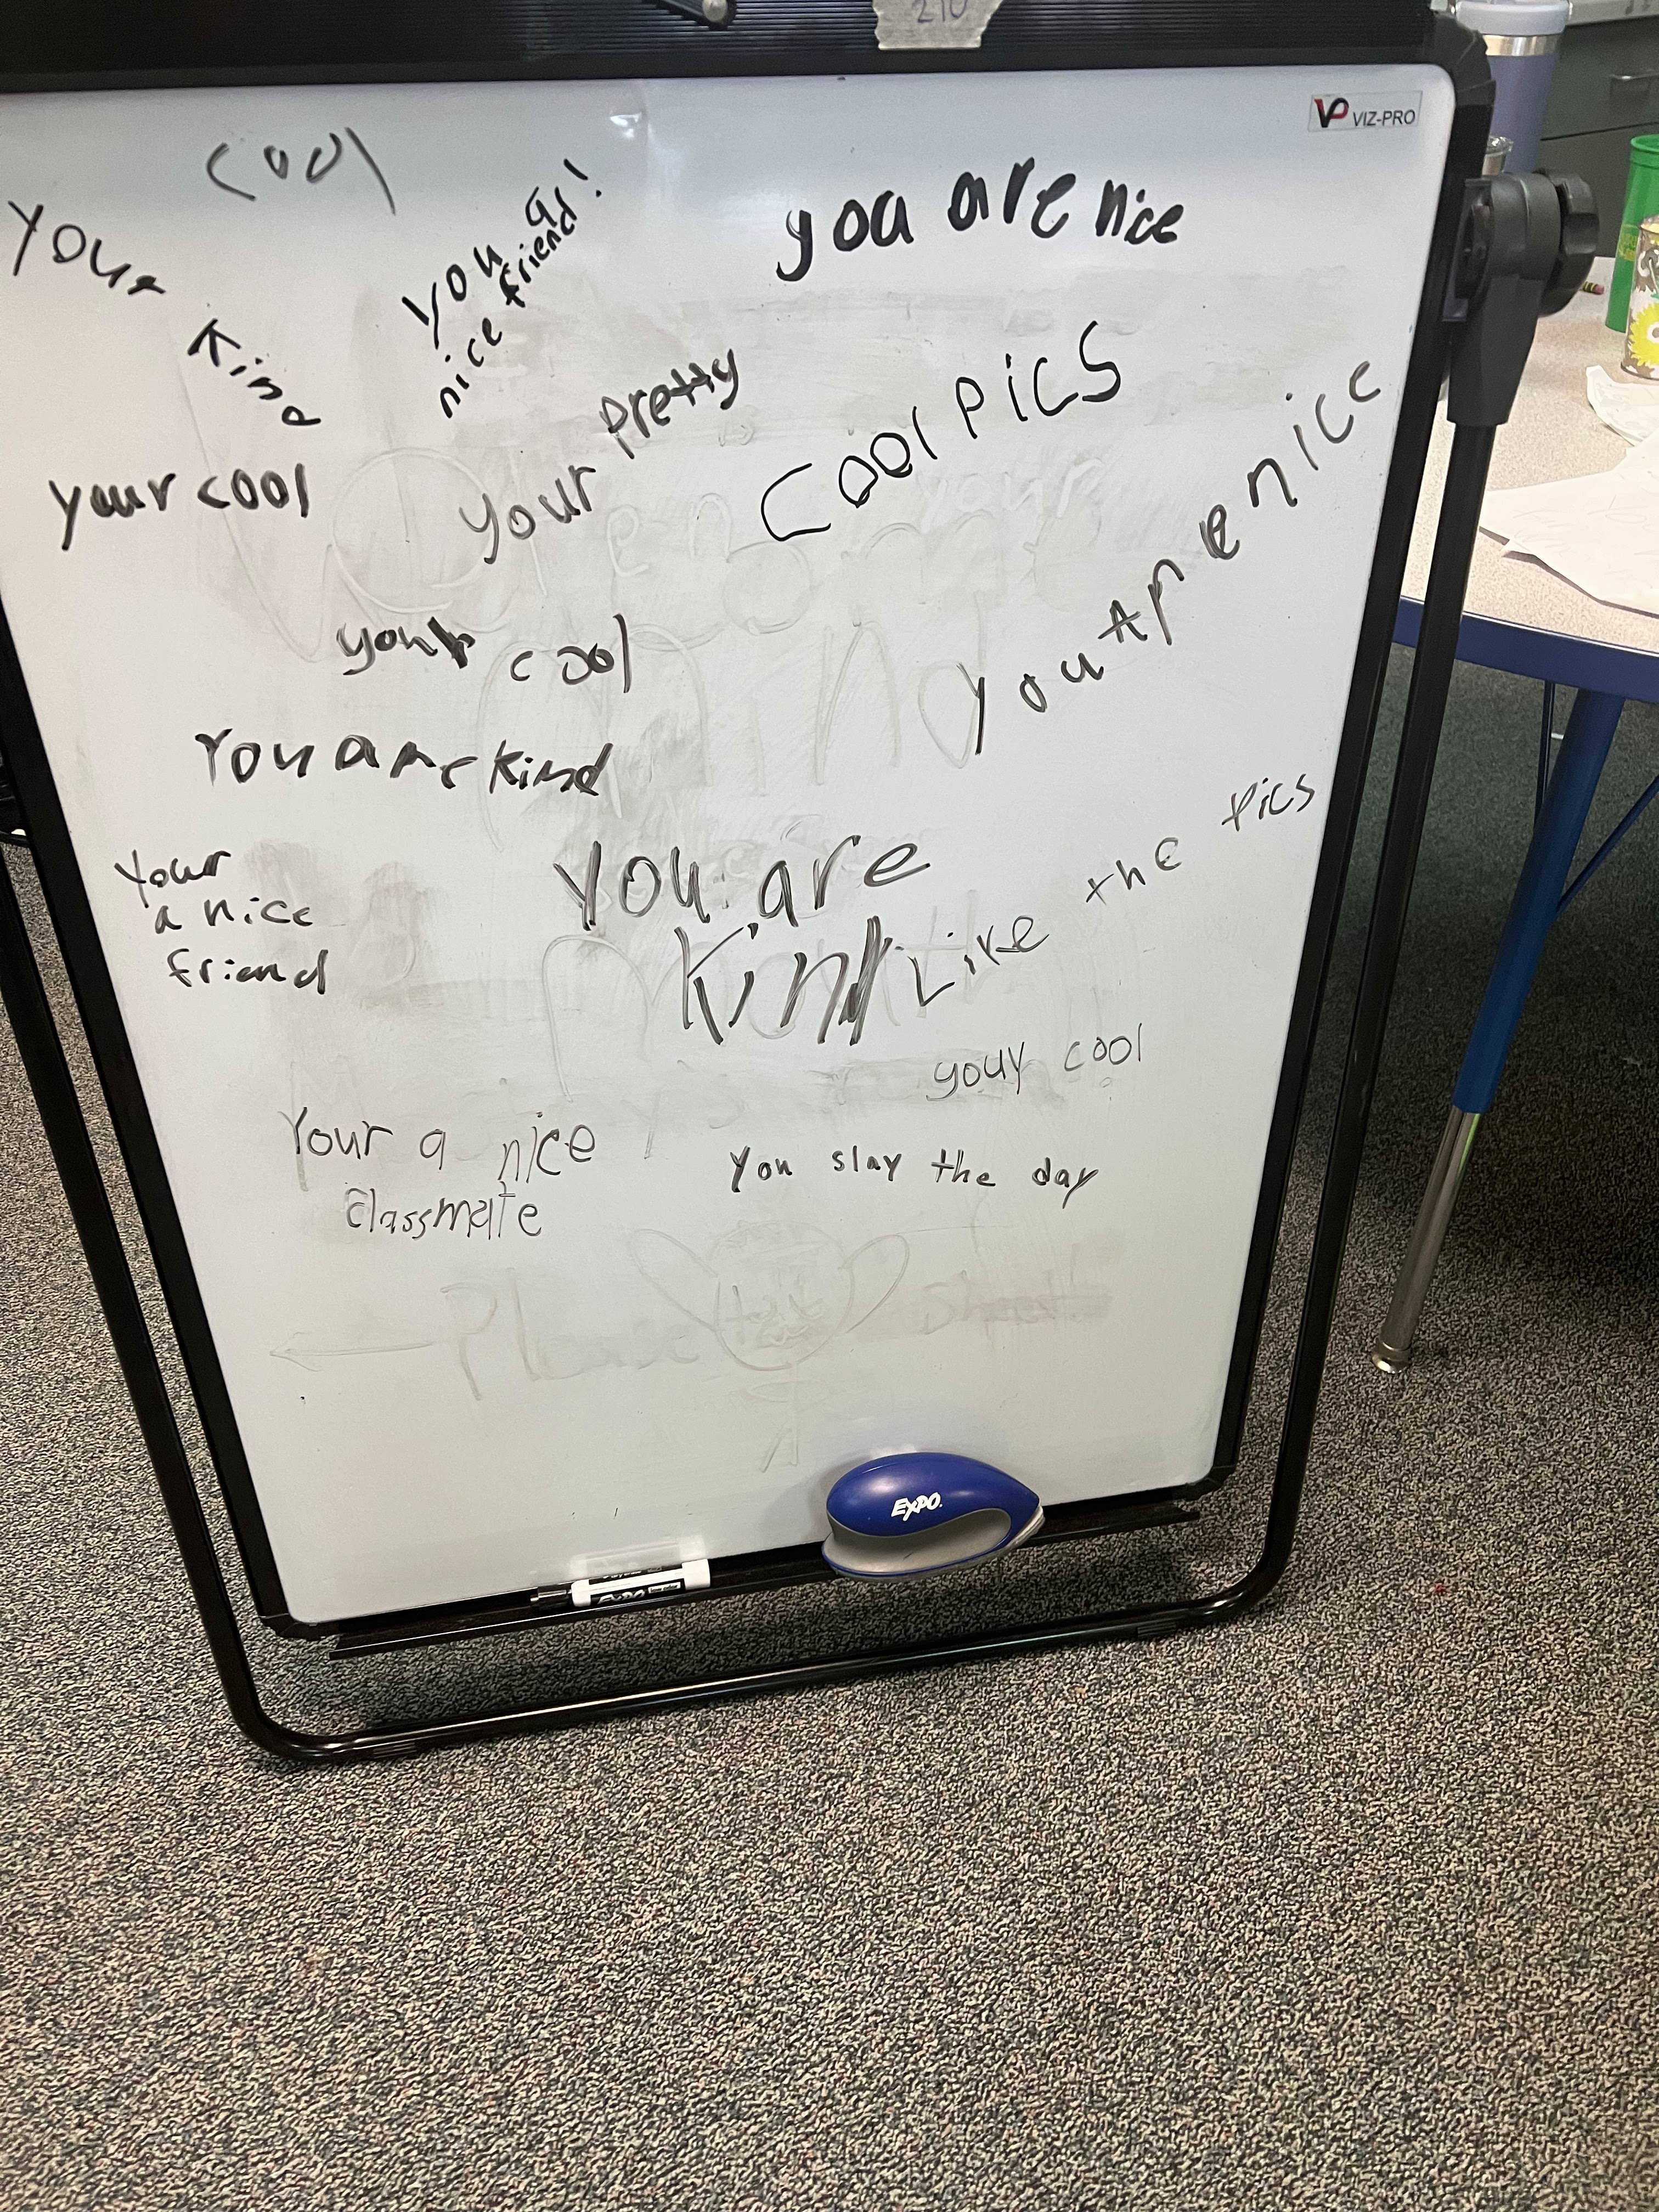 210
VIZ-PRO
cool
your
kind
you a
nice friend!
you are nice
your pretty
Cool pics
your cool
you Are nice
your cool
You are kind
Your
a nice
friend
you are
Kind
Like the pics
youy cool
Your a nice
classmate
you slay the day
EXPO
EXPO